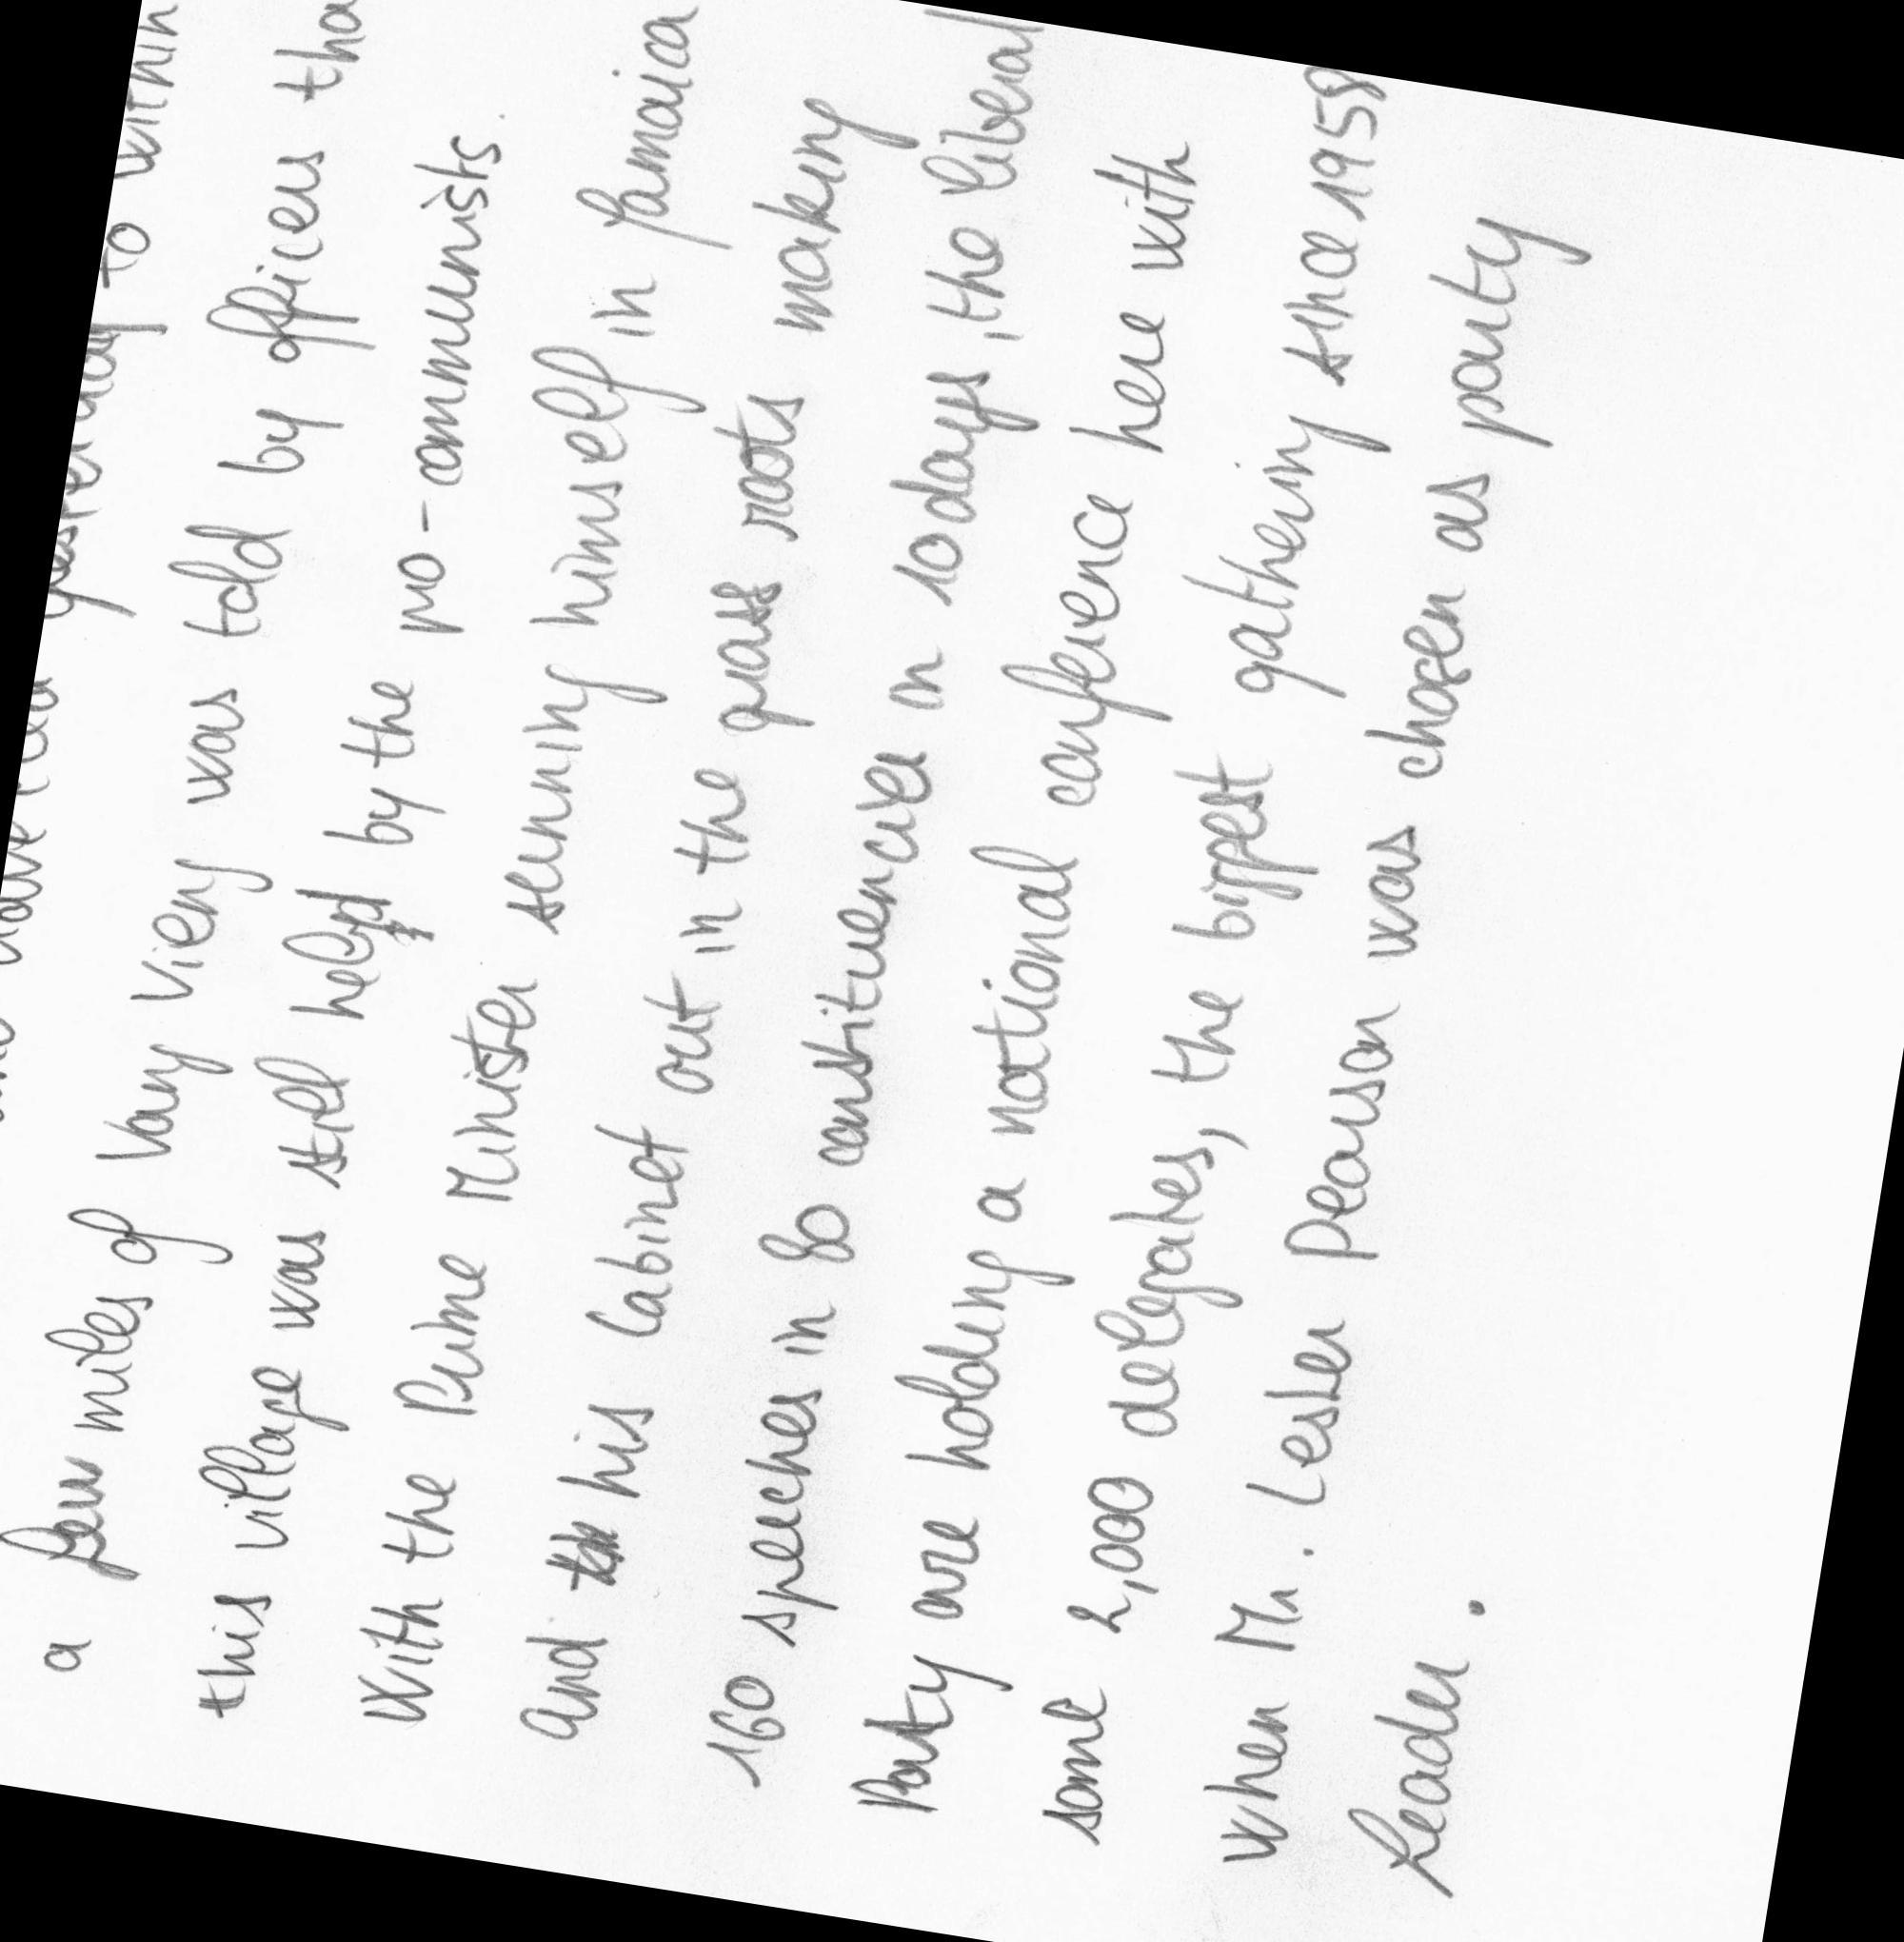 travelled yesterday to within
a few miles of Vang Vieng was told by officers tha
this village was still held by the pro-communists.
With the Prime Minister sunning himself in Jamaica
and his Cabinet out in the grass roots making
160 speeches in 80 constituencies in 10 days, the Liberal
Party are holding a national conference here with
some 2,000 delegates, the biggest gathering since 1958
when Mr. Lester Pearson was chosen as party
Leader.